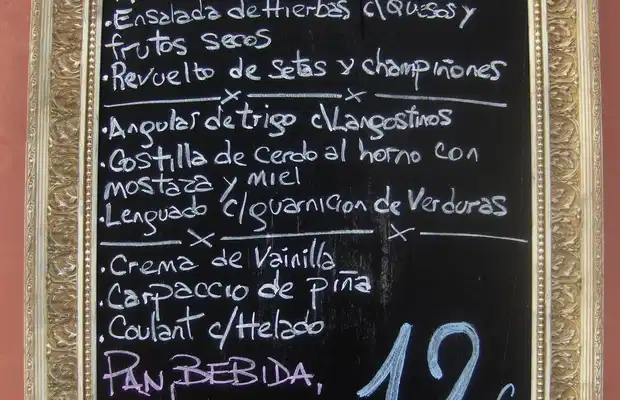 .Ensalada de Hierbas c/Quesos y
frutos secos
.Revuelto de setas y champiñones
.Angulas de trigo c/Langostinos
.Costilla de cerdo al horno con
mostaza y miel
.Lenguado c/guarnicion de Verduras
.Crema de Vainilla
.Carpaccio de piña
.Coulant c/Helado
PAN, BEBIDA,
12